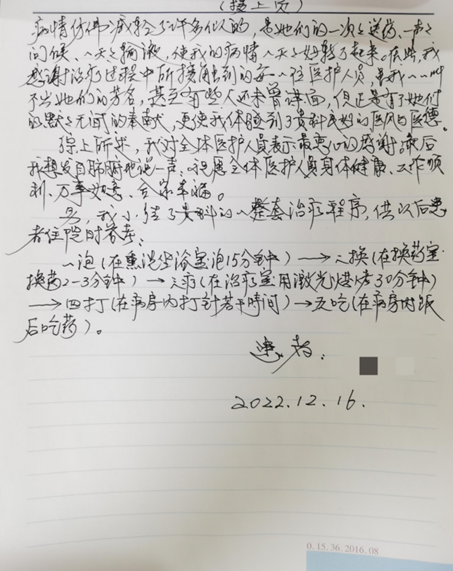 (接上页)
病情仿佛减轻了许多似的,是她们的一次次送药、一声声
问候、一天天输液,使我的病情一天天好转了起来。因此,我
感谢治疗过程中所接触到的每一位医护人员,虽我一一叫
不出她们的芳名,甚至有些人还未曾谋面,但正是有了她们
的默默无闻的奉献,更使我体验到了贵科良好的医风医德。
综上所述,我对全体医护人员表示最衷心的感谢,最后
我想发自肺腑地说一声:祝愿全体医护人员身体健康、工作顺
利、万事如意、合家幸福。
另,我小结了贵科的一整套治疗程序,供以后患
者住院时参考:
一泡(在熏洗坐浴室泡15分钟)→二换(在换药室
换药2-3分钟)→三疗(在治疗室用激光烘烤30分钟)
→四打(在病房内打针若干时间)→五吃(在病房内饭
后吃药)。
患者:
2022.12.16.
0.15.36.2016.08